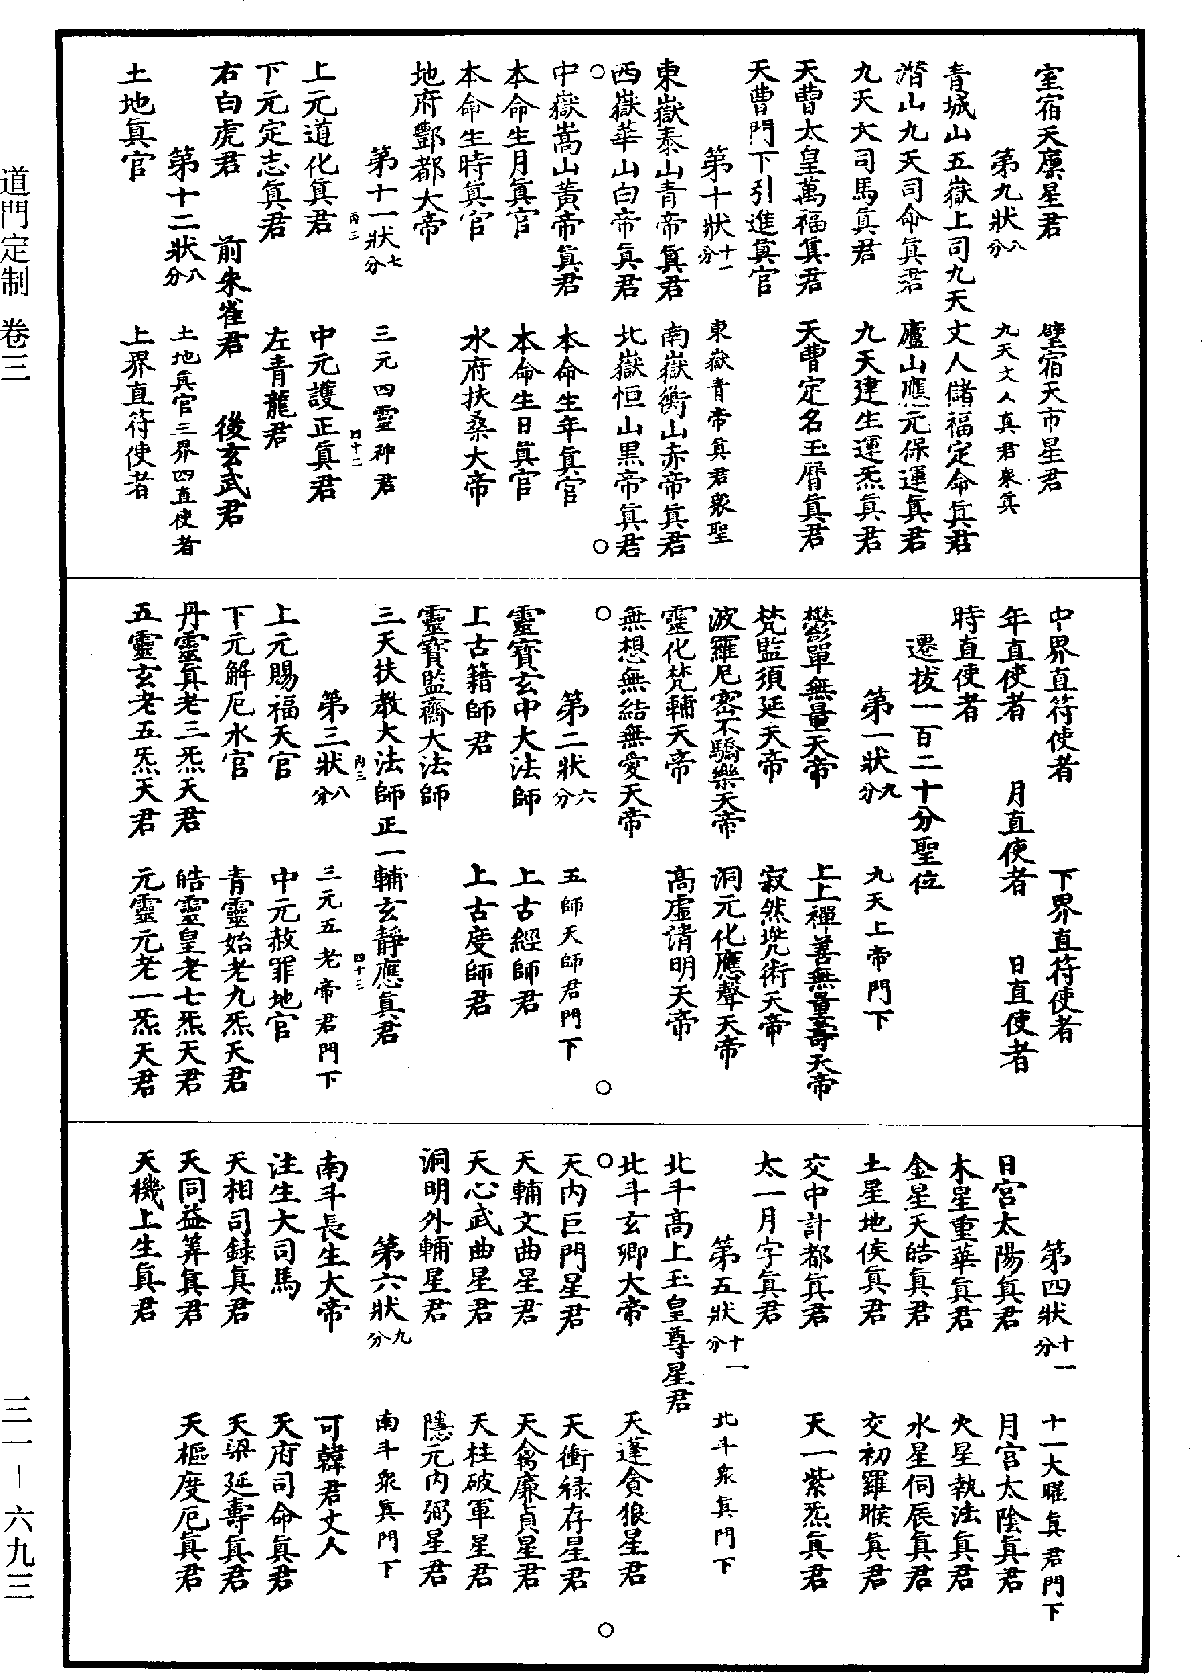 室宿天廩星君　壁宿天市星君
第九狀八分　九天丈人真君衆真
青城山五嶽上司九天丈人儲福定命眞君
潛山九天司命眞君　廬山應元保運眞君
九天大司馬眞君　九天建生運炁眞君
天曹太皇萬福眞君　天曹定名玉曆眞君
天曹門下引進眞官
第十狀十一分　東嶽青帝眞君衆聖
東嶽泰山青帝眞君　南嶽衡山赤帝眞君
西嶽華山白帝眞君　北嶽恒山黑帝眞君
○　○
中嶽嵩山黃帝眞君　本命生年眞官
本命生月眞官　本命生日眞官
本命生時眞官　水府扶桑大帝
地府酆都大帝
第十一狀七分　三元四靈神君
丙三　四十二
上元道化眞君　中元護正眞君
下元定志眞君　左青龍君
右白虎君　前朱雀君　後玄武君
第十二狀八分　土地眞官三界四直使者
土地眞官　上界直符使者
中界直符使者　下界直符使者
年直使者　月直使者　日直使者
時直使者
遷拔一百二十分聖位
第一狀九分　九天上帝門下
鬱單無量天帝　上上禪善無量壽天帝
梵監須延天帝　寂然兠術天帝
波羅尼密不驕樂天帝　洞元化應聲天帝
靈化梵輔天帝　高虛清明天帝
無想無結無愛天帝
○　○
第二狀六分　五師天師君門下
靈寶玄中大法師　上古經師君
上古籍師君　上古度師君
靈寶監齋大法師
三天扶教大法師正一輔玄靜應真君
丙三　四十三
第三狀八分　三元五老帝君門下
上元賜福天官　中元赦罪地官
下元解厄水官　青靈始老九炁天君
丹靈真老三炁天君　皓靈皇老七炁天君
五靈玄老五炁天君　元靈元老一炁天君
第四狀十一分　十一大曜眞君門下
日宮太陽眞君　月宮太陰眞君
木星重華眞君　火星執法眞君
金星天皓眞君　水星伺辰眞君
土星地侯眞君　交初羅睺眞君
交中計都眞君　天一紫炁眞君
太一月孛眞君
第五狀十一分　北斗衆眞門下
北斗高上玉皇尊星君
北斗玄卿大帝　天蓬貪狼星君
○　○
天內巨門星君　天衝祿存星君
天輔文曲星君　天禽廉貞星君
天心武曲星君　天柱破軍星君
洞明外輔星君　隱元內弼星君
第六狀九分　南斗衆眞門下
南斗長生大帝　可韓君丈人
注生大司馬　天府司命眞君
天相司録眞君　天梁延壽眞君
天同益筭眞君　天樞度厄眞君
天機上生眞君
道門定制　卷三
三一—六九三